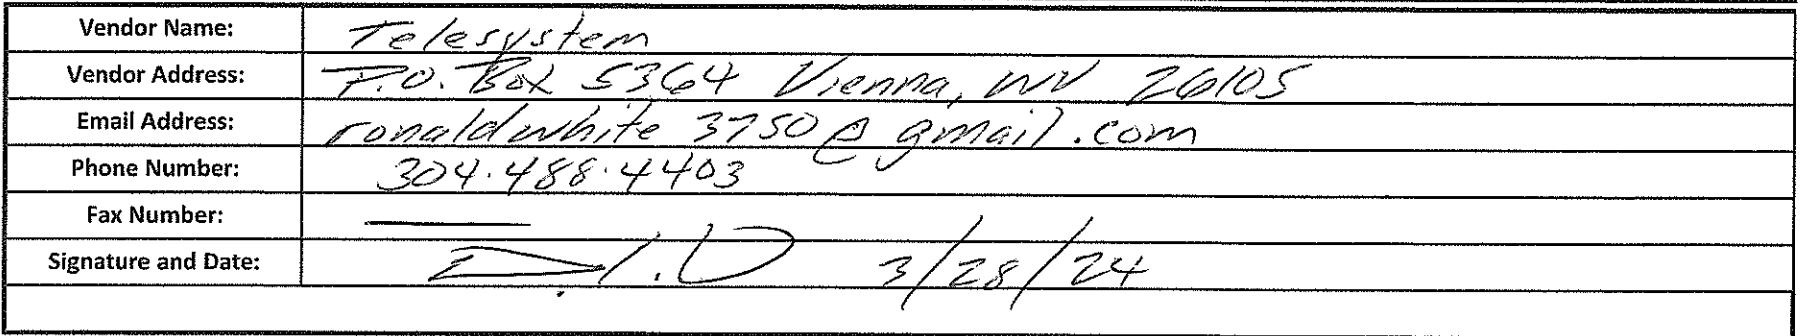 Vendor Name: Telesystem
Vendor Address: P.O. Box 5364 Vienna, WV 26105
Email Address: ronaldwhite3750@gmail.com
Phone Number: 304.488.4403
Fax Number: —
Signature and Date: 3/28/24